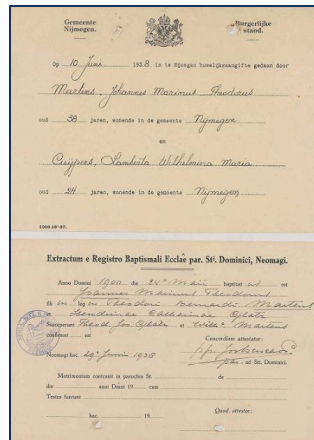 Gemeente
Nijmegen.
Burgerlijke
stand.
Op 10 Juni 1938 is te Nijmegen huwelijksaangifte gedaan door
Martens, Johannes Marinus Theodorus
oud 38 jaren, wonende in de gemeente Nijmegen
en
Cuijpers, Lamberta Wilhelmina Maria
oud 24 jaren, wonende in de gemeente Nijmegen
Extractum e Registro Baptismali Ecclae par. Sti. Dominici, Neomagi.
Anno Domini 1900 die 24a Maii baptizat us est
Joannes Marinus Theodorus
fil ius leg Theodori Bernardi Martens
et Hendrinae Catharinae
Susceperunt Theod. Jos. et Martens
confirmat
Concordiam attestatur:
Neomagi hac 29a Junii 1938
par. ad Sti. Dominici.
Matrimonium contraxit in parochia St. de
die anni Domi 19 cum
Testes fuerunt
Quod. attestor:
hac 19